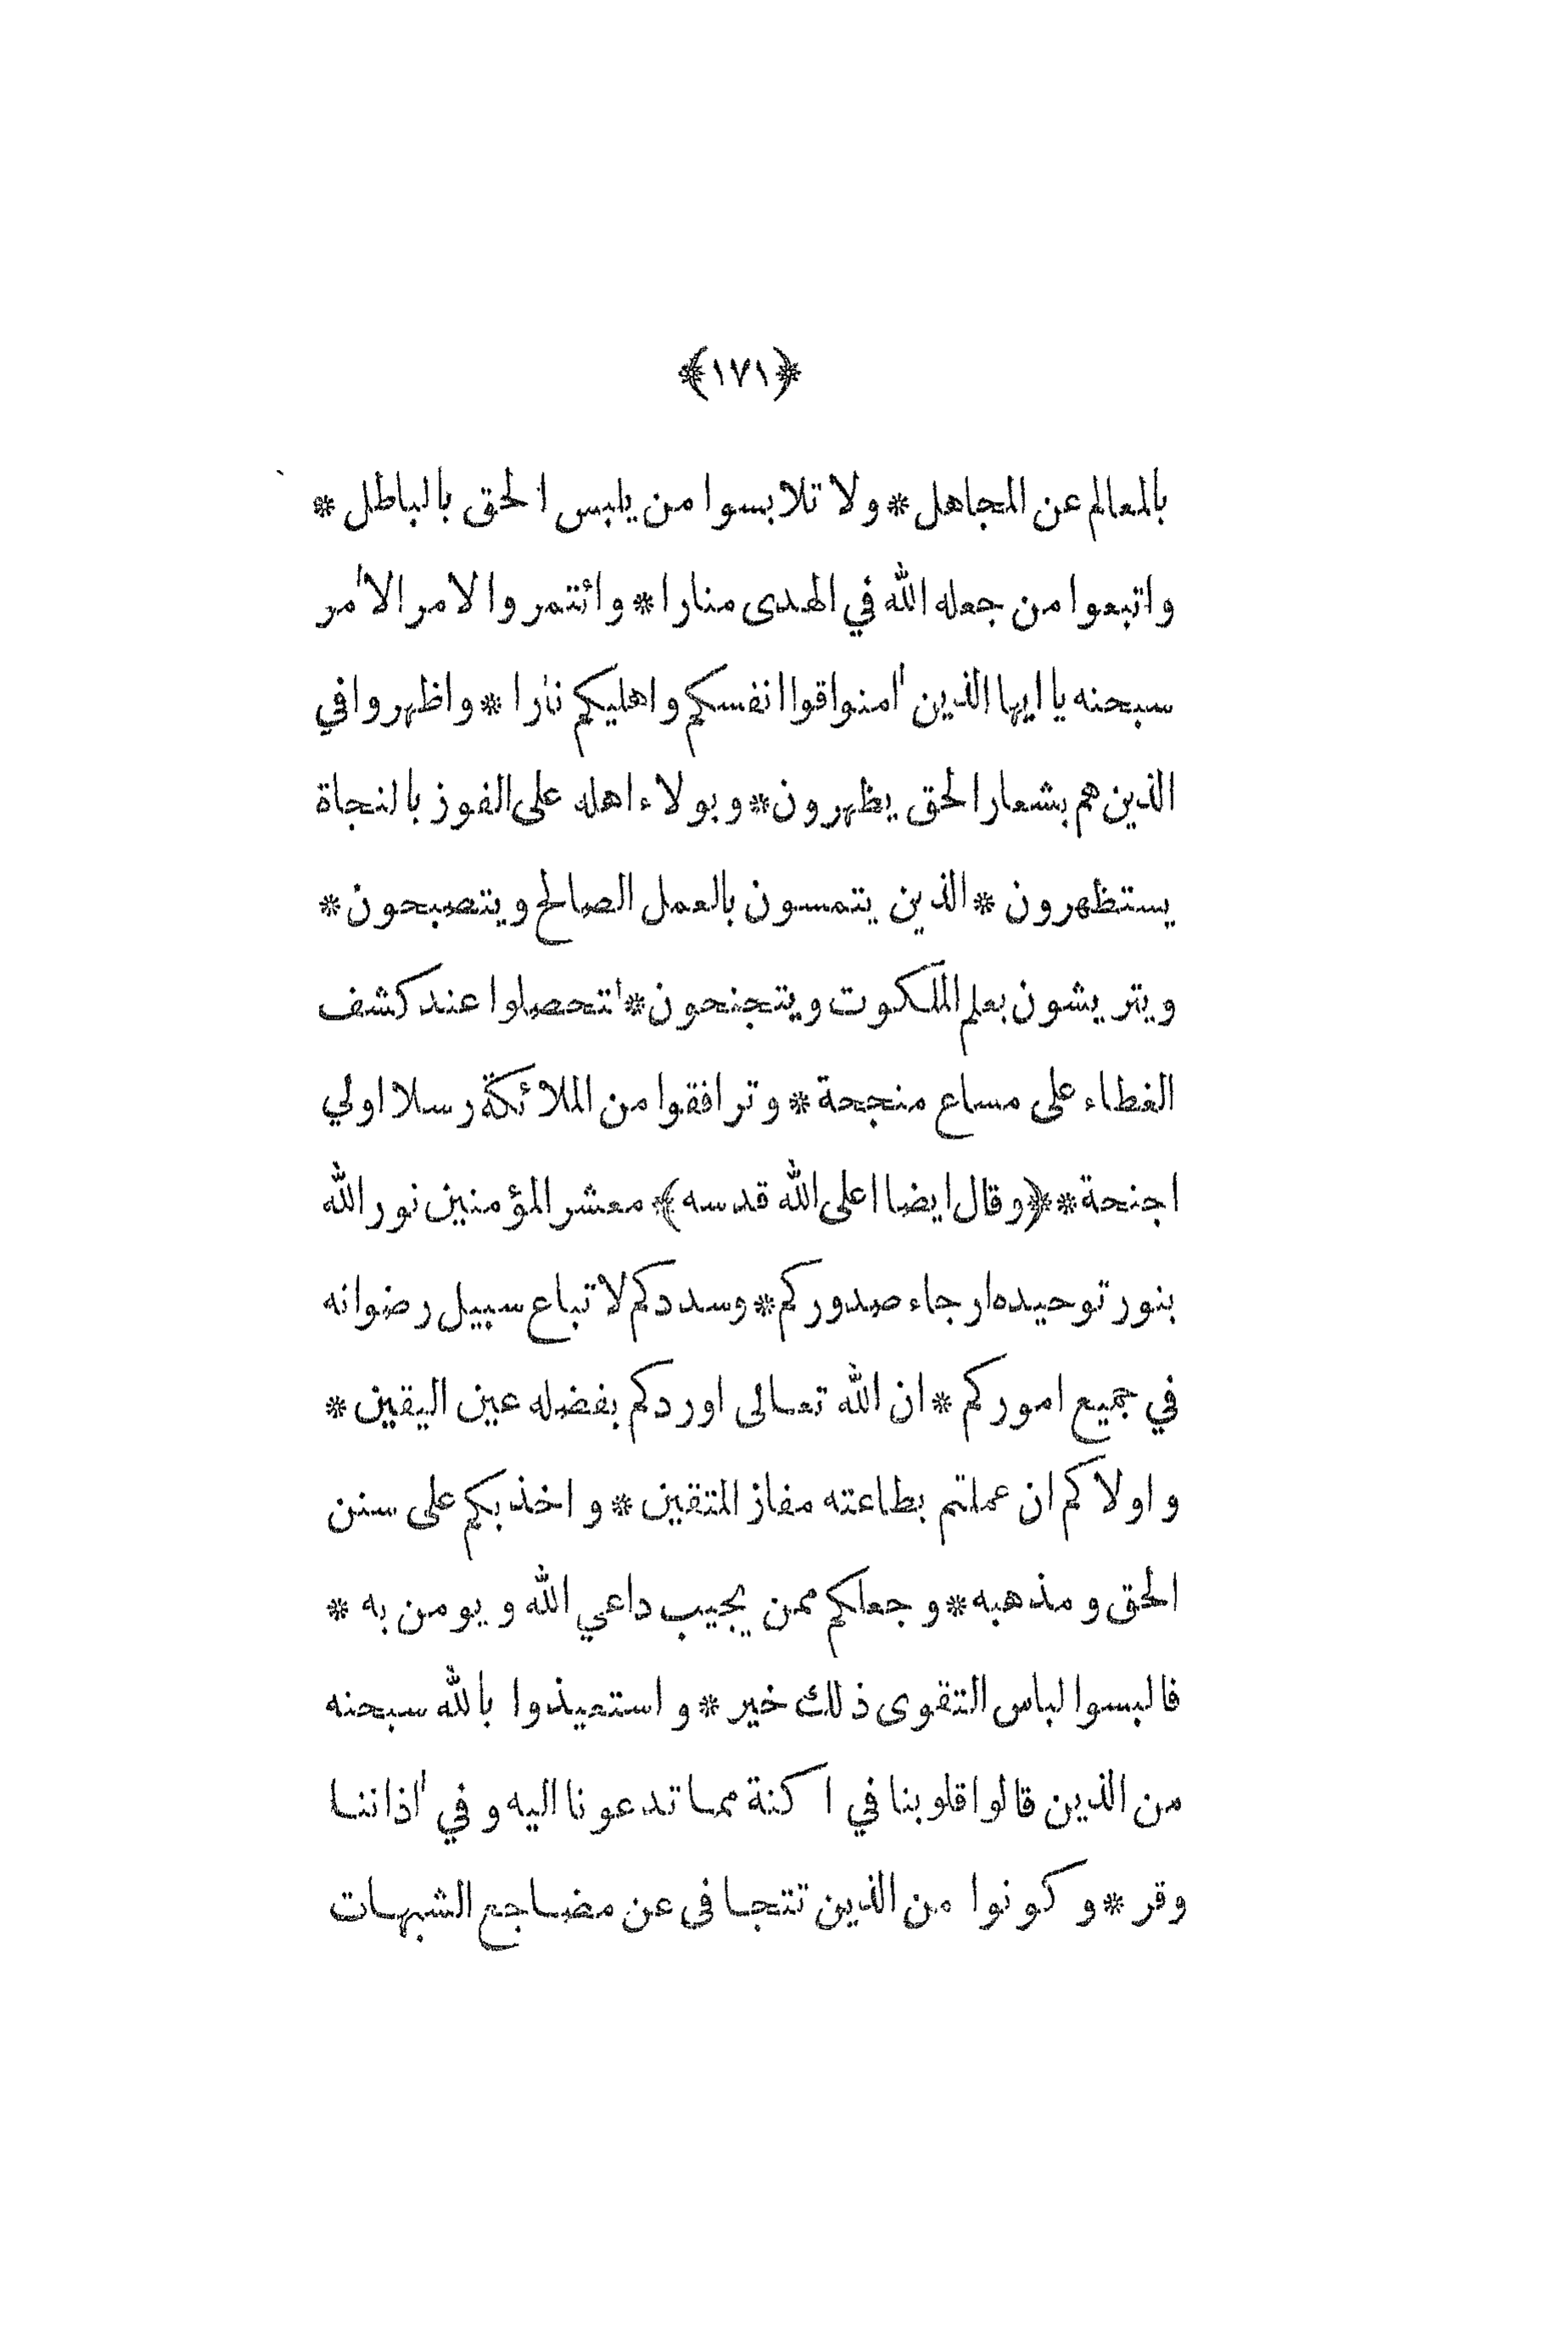 ﴿١٧١﴾
بالمعالم عن المجاهل * ولا تلابسوا من يلبس الحق بالباطل *
واتبعوا من جعله الله في الهدى منارا * وائتمروا لامر الآمر
سبحنه يا ايها الذين آمنوا قوا انفسكم واهليكم نارا * واظهروا في
الذين هم بشعار الحق يظهرون * وبولاء اهله على الفوز بالنجاة
يستظهرون * الذين يتمسون بالعمل الصالح ويتصبحون *
ويتريشون بعلم الملكوت ويتجنحون * لتحصلوا عند كشف
الغطاء على مساع منجحة * وترافقوا من الملائكة رسلا اولي
اجنحة * ﴿وقال ايضا اعلى الله قدسه﴾ معشر المؤمنين نور الله
بنور توحيده ارجاء صدوركم * وسددكم لاتباع سبيل رضوانه
في جميع اموركم * ان الله تعالى اوردكم بفضله عين اليقين *
واولاكم ان عملتم بطاعته مفاز المتقين * واخذ بكم على سنن
الحق ومذهبه * وجعلكم ممن يجيب داعي الله ويومن به *
فالبسوا لباس التقوى ذلك خير * واستعيذوا بالله سبحنه
من الذين قالوا قلوبنا في اكنة مما تدعونا اليه وفي آذاننا
وقر * وكونوا من الذين تتجافى عن مضاجع الشبهات